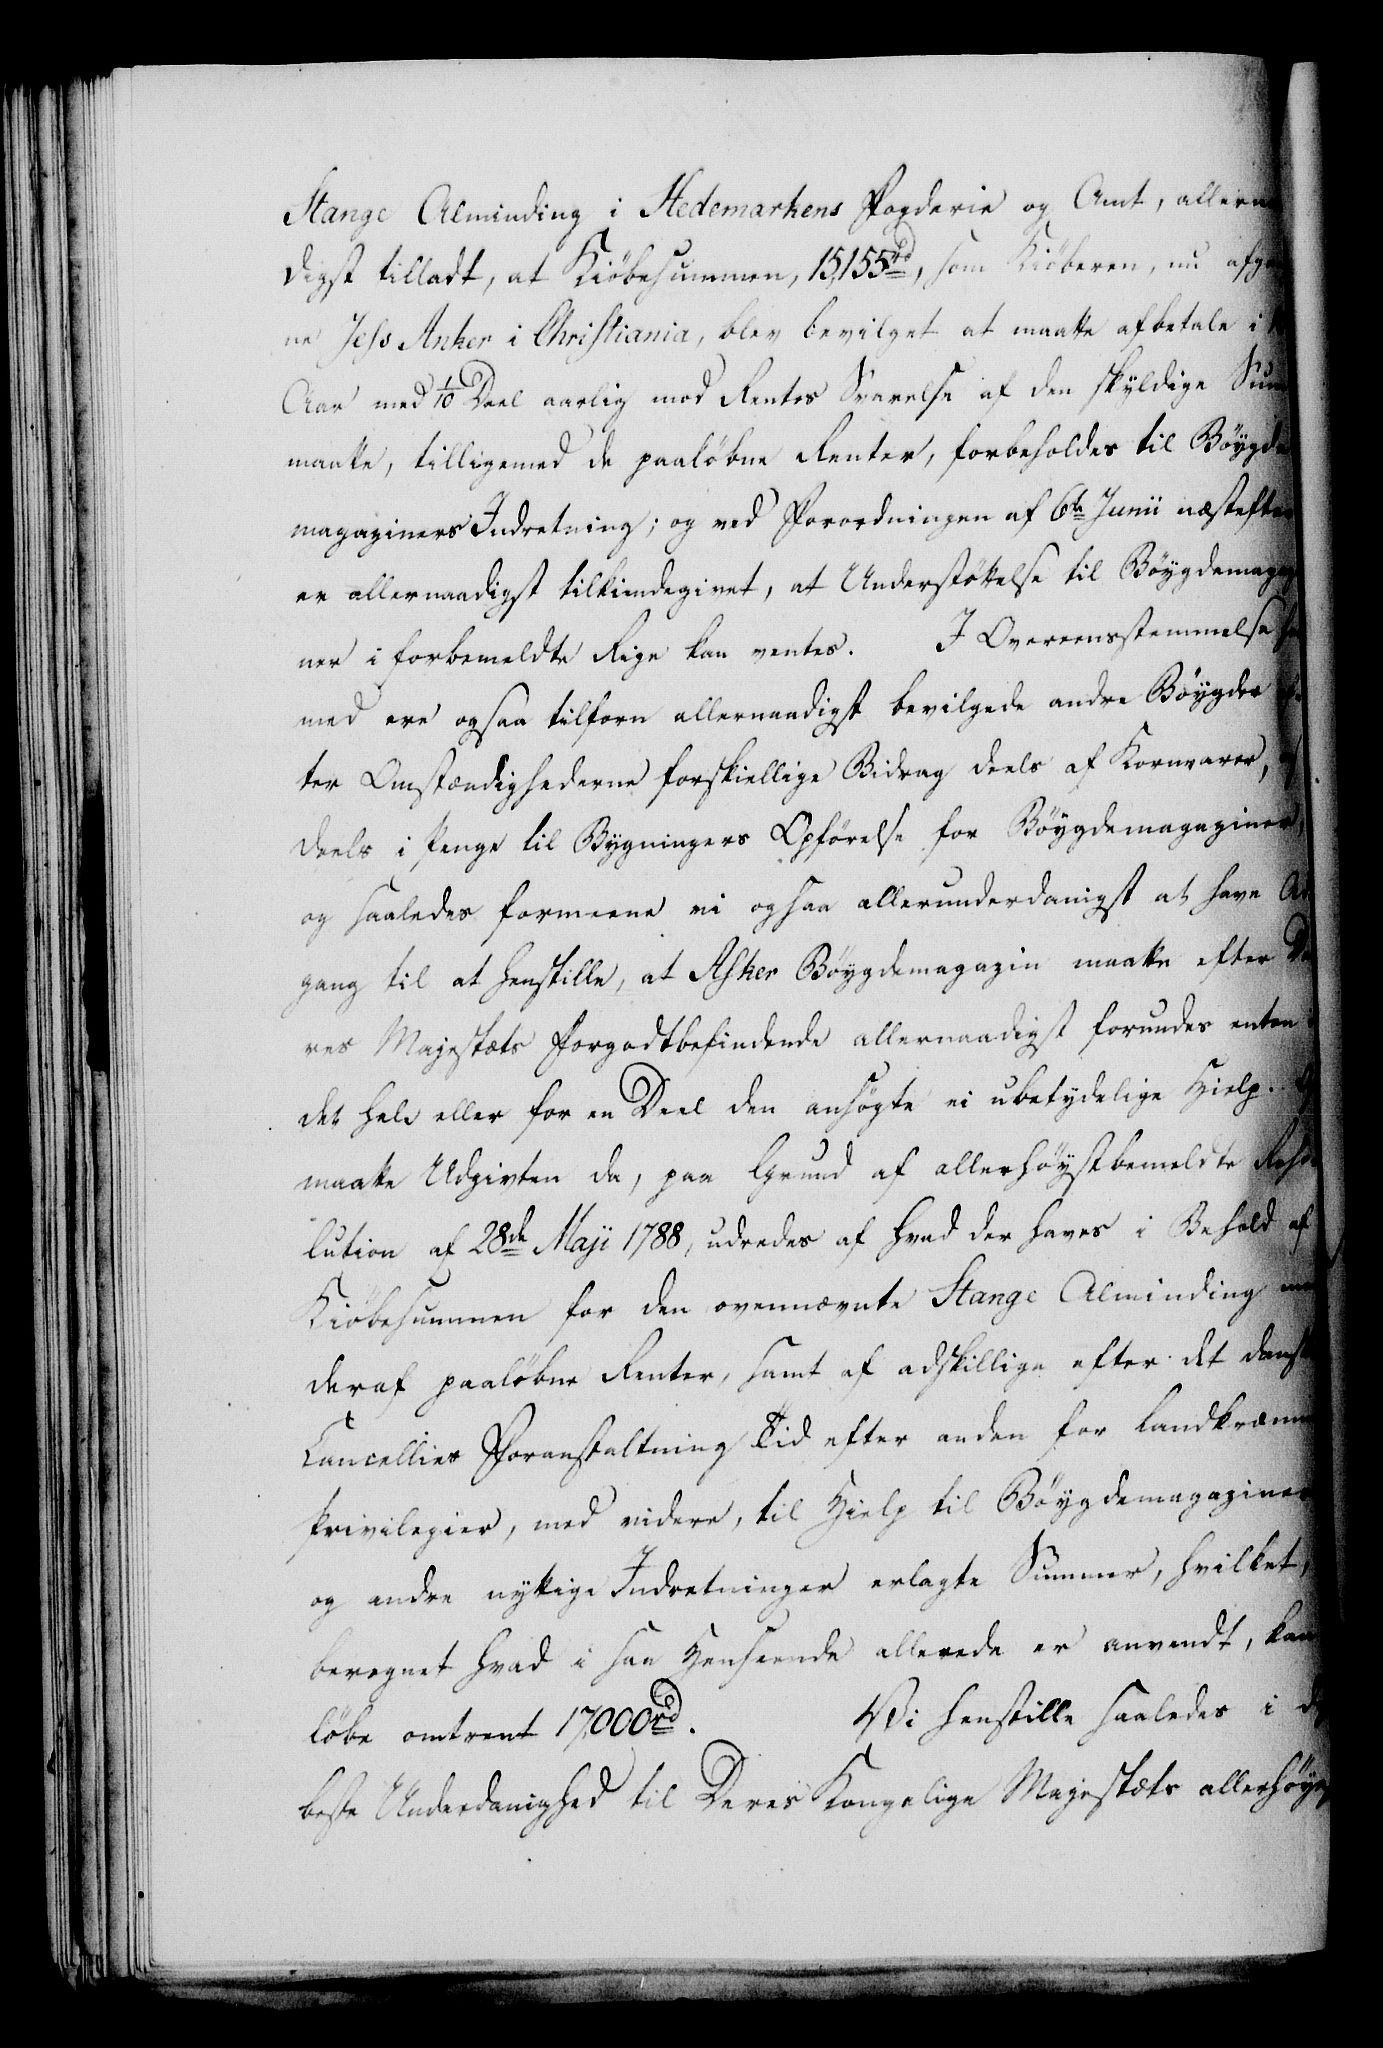 Stange Alminding i Hedemarkens Fogderie og Amt, allerna
digst tilladt, at Kiöbesummen, 15,155rd, som Kiöberen, nu afg
ne Jess Anker i Christiania, blev bevilget at maatte afbetale i
Aar med 1/10 Deel aarlig mod Rentes Svarelse af den skyldige Sum
maatte, tilligemed de paaløbne Renter, forbeholdes til Böygde
magaziners Indretning; og ved Forordningen af 6te Junii næstefter
er allernaadigst tilkiendegivet, at Understøttelse til Böygdemagazi
ner i forbemeldte Rige kan ventes. I Overeensstemmelse her
med ere ogsaa tilforn allernaadigst bevilgede andre Böygder ef
ter Omstændighederne forskiellige Bidrag deels af Kornvarer,
deels i Penge til Bygningers Opförelse for Böygdemagaziner,
og saaledes formeene vi ogsaa allerunderdanigst at have Ad
gang til at henstille, at Asker Böygdemagazin maatte efter De
res Majestæts Forgodtbefindende allernaadigst forundes enten i
det hele eller for en Deel den ansögte ei ubetydelige Hielp. Og
maatte Udgivten da, paa Grund af allerhöystbemeldte Reso
lution af 28de Maji 1788, udredes af hvad der haves i Behold af
Kiöbesummen for den ovennævnte Stange Alminding med
deraf paaløbne Renter, samt af adskillige efter det danske
Cancellies Foranstaltning Tid efter anden for Landkræmmer
Privilegier, med videre, til Hielp til Böygdemagaziner
og andre nyttige Indretninger erlagte Summer, hvilket,
beregnet hvad i saa Henseende allerede er anvendt, kan
løbe omtrent 17,000rd. Vi henstille saaledes i dy
beste Underdanighed til Deres Kongelige Majestæts allerhöyes